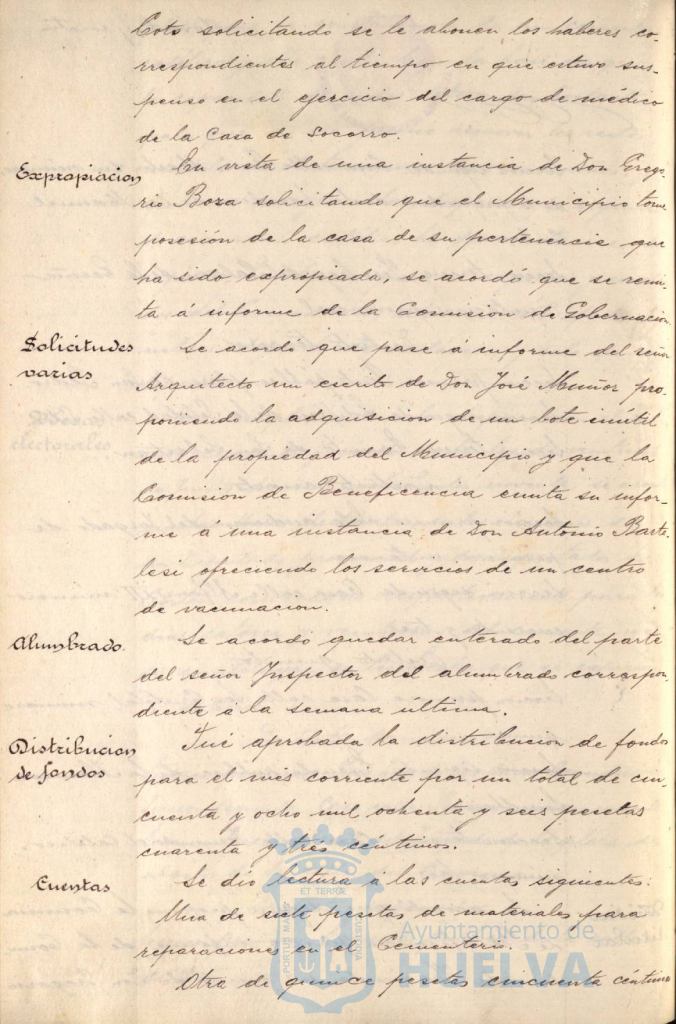 Coto solicitando se le abonen los haberes co-
rrespondientes al tiempo en que estuvo sus-
penso en el ejercicio del cargo de médico
de la Casa de Socorro.
Expropiacion
En vista de una instancia de Don Grego-
rio Boza solicitando que el Municipio tome
posesión de la casa de su pertenencia que
ha sido expropiada, se acordó que se remi-
ta á informe de la Comision de Gobernacion.
Solicitudes
varias
Se acordó que pase á informe del señor
Arquitecto un escrito de Don José Muñoz pro-
poniendo la adquisicion de un bote inútil
de la propiedad del Municipio y que la
Comision de Beneficencia emita su infor-
me á una instancia de Don Antonio Barte-
lesi ofreciendo los servicios de un centro
de vacunacion.
Alumbrado.
Se acordó quedar enterado del parte
del señor Inspector del alumbrado correspon-
diente á la semana última.
Distribucion
de fondos
Fué aprobada la distribucion de fondos
para el mes corriente por un total de cin-
cuenta y ocho mil ochenta y seis pesetas
cuarenta y tres céntimos.
Cuentas
Se dió lectura á las cuentas siguientes:
Una de siete pesetas de materiales para
reparaciones en el Cementerio.
Otra de quince pesetas cincuenta céntimos
ET TERRAE
PORTUS MARIS
CUSTODIA
Ayuntamiento de
HUELVA